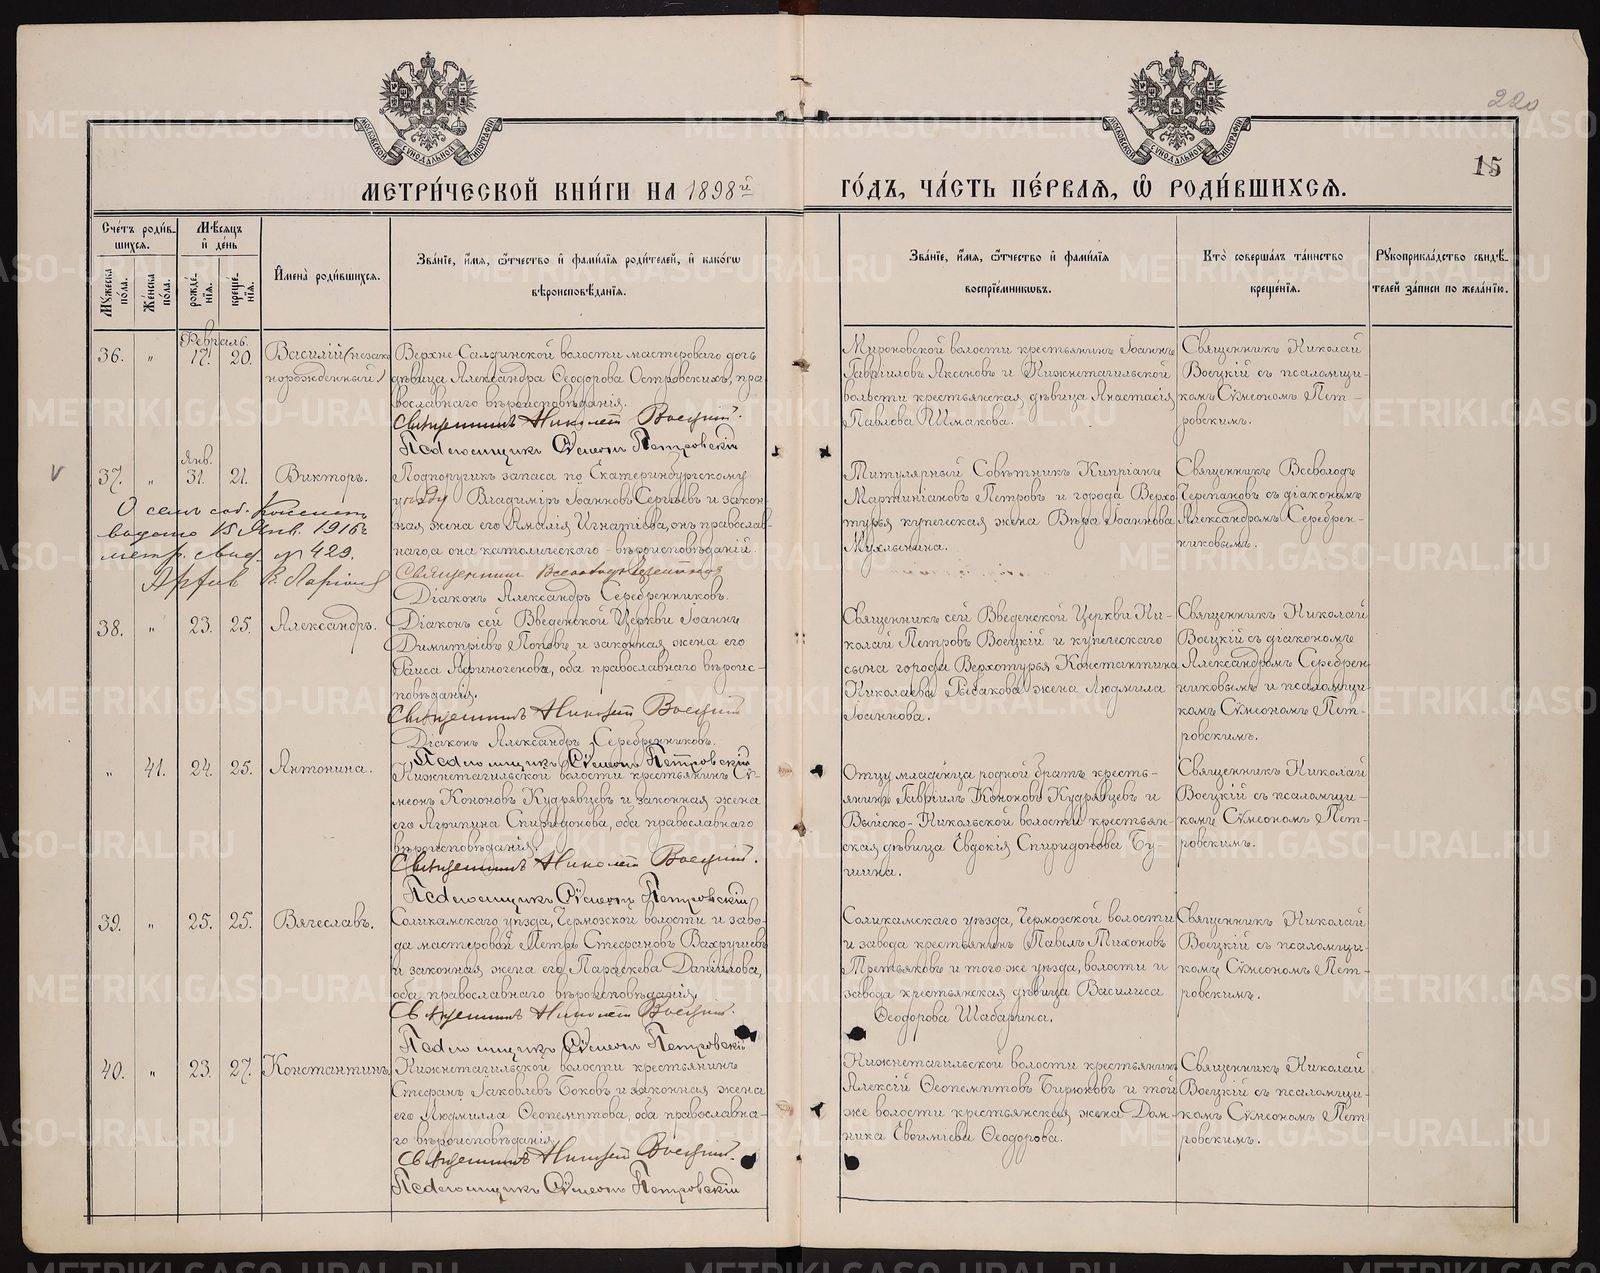 220
15
МОСКОВСКОЙ СѴНОДАЛЬНОЙ ТИПОГРАФІИ
МОСКОВСКОЙ СѴНОДАЛЬНОЙ ТИПОГРАФІИ
МЕТРИ́ЧЕСКОЙ КНИ́ГИ НА 1898й
ГО́ДЪ, ЧА́СТЬ ПЕ́РВАѦ, Ѡ РОДИ́ВШИХСѦ.
Сче́тъ роди́в-
шихся.
Мѣ́сяцъ
и де́нь
Мꙋ́жеска по́ла.
Же́нска по́ла.
рожде́-нїя.
креще́-нїя.
Имена̀ роди́вшихся.
Зва́нїе, и́мя, ѻ҆́тчество и фами́лїя роди́телей, и како́гѡ
вѣроисповѣ́данїя.
Зва́нїе, и́мя, ѻ҆́тчество и фами́лїя
воспрїе́мникѡвъ.
Кто̀ соверша́лъ та́инство
креще́нїя.
Рꙋкоприкла́дство свидѣ́-
телей за́писи по жела́нїю.
Февраль.
36. " 17. 20. Василій (незако
норожденный)
Верхне-Салдинской волости мастероваго дочь
дѣвица Александра Ѳеодорова Островскихъ, пра
вославнаго вѣроисповѣданія.
Священникъ Николай Воецкій.
Псаломщикъ Сѵмеонъ Петровскій
Мироновской волости крестьянинъ Іоаннъ
Гавріиловъ Аксеновъ и Нижнетагильской
волости крестьянская дѣвица Анастасія
Павлова Шмакова.
Священникъ Николай
Воецкій съ псаломщи-
комъ Сѵмеономъ Пет-
ровскимъ.
Янв.
37. " 31. 21. Викторъ.
О семъ
15 Янв. 1916 г
метр. свид. № 429.
Подпоручикъ запаса по Екатеринбургскому
уѣзду Владиміръ Іоанновъ Сергѣевъ и закон-
ная жена его Амалія Игнатіева, онъ православ-
наго, а она католическаго - вѣроисповѣданій.
Священникъ Всеволодъ Черепановъ
Діаконъ Александръ Серебренниковъ.
Титулярный Совѣтникъ Кипріанъ
Мартиніановъ Петровъ и города Верхо
турья купеческая жена Вѣра Іоаннова
Мухлынина.
Священникъ Всеволодъ
Черепановъ съ діакономъ
Александромъ Серебрен-
никовымъ.
38. " 23. 25. Александръ.
Діаконъ сей Введенской Церкви Іоаннъ
Димитріевъ Поповъ и законная жена его
Раиса Афиногенова, оба православнаго вѣроис-
повѣданія.
Священникъ Николай Воецкій
Діаконъ Александръ Серебренниковъ.
Псаломщикъ Сѵмеонъ Петровскій
Священникъ сей Введенской Церкви Ни-
колай Петровъ Воецкій и купеческаго
сына города Верхотурья Константина
Николаева Рысакова жена Людмила
Іоаннова.
Священникъ Николай
Воецкій съ діакономъ
Александромъ Серебрен
никовымъ и псаломщи-
комъ Сѵмеономъ Пет-
ровскимъ.
" 41. 24. 25. Антонина.
Нижнетагильской волости крестьянинъ Сѵ-
меонъ Кононовъ Кудрявцевъ и законная жена
его Агрипина Спиридонова, оба православнаго
вѣроисповѣданія.
Священникъ Николай Воецкій.
Псаломщикъ Сѵмеонъ Петровскій
Отцу младенца родной братъ кресть-
янинъ Гавріилъ Кононовъ Кудрявцевъ и
Выйско-Никольской волости крестьян-
ская дѣвица Евдокія Спиридонова Бу-
шина.
Священникъ Николай
Воецкій съ псаломщи-
комъ Сѵмеономъ Пет-
ровскимъ.
39. " 25. 25. Вячеславъ.
Соликамскаго уѣзда, Чермозской волости и заво-
да мастеровой Петръ Стефановъ Вахрушевъ
и законная жена его Параскева Даніилова,
оба православнаго вѣроисповѣданія.
Священникъ Николай Воецкій.
Псаломщикъ Сѵмеонъ Петровскій
Соликамскаго уѣзда, Чермозской волости
и завода крестьянинъ Павелъ Тихоновъ
Третьяковъ и того же уѣзда, волости и
завода крестьянская дѣвица Василиса
Ѳеодорова Шабарина.
Священникъ Николай
Воецкій съ псаломщи-
комъ Сѵмеономъ Пет-
ровскимъ.
40. " 23. 27. Константинъ.
Нижнетагильской волости крестьянинъ
Стефанъ Іаковлевъ Боковъ и законная жена
его Людмилла Ѳеопемптова, оба православна-
го вѣроисповѣданія.
Священникъ Николай Воецкій.
Псаломщикъ Сѵмеонъ Петровскій
Нижнетагильской волости крестьянинъ
Алексій Ѳеопемптовъ Бирюковъ и той
же волости крестьянская жена Дом-
ника Евѳиміева Ѳеодорова.
Священникъ Николай
Воецкій съ псаломщи-
комъ Сѵмеономъ Пет
ровскимъ.
METRIKI.GASO-URAL.RU